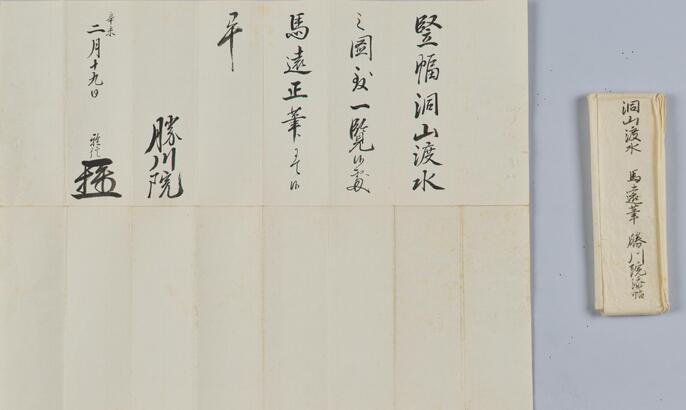 竪幅洞山渡水
之圖致一覧候處
馬遠正筆ニ而候
平
勝川院
辛未
二月十九日 雅信
洞山渡水 馬遠筆 勝川院添帖